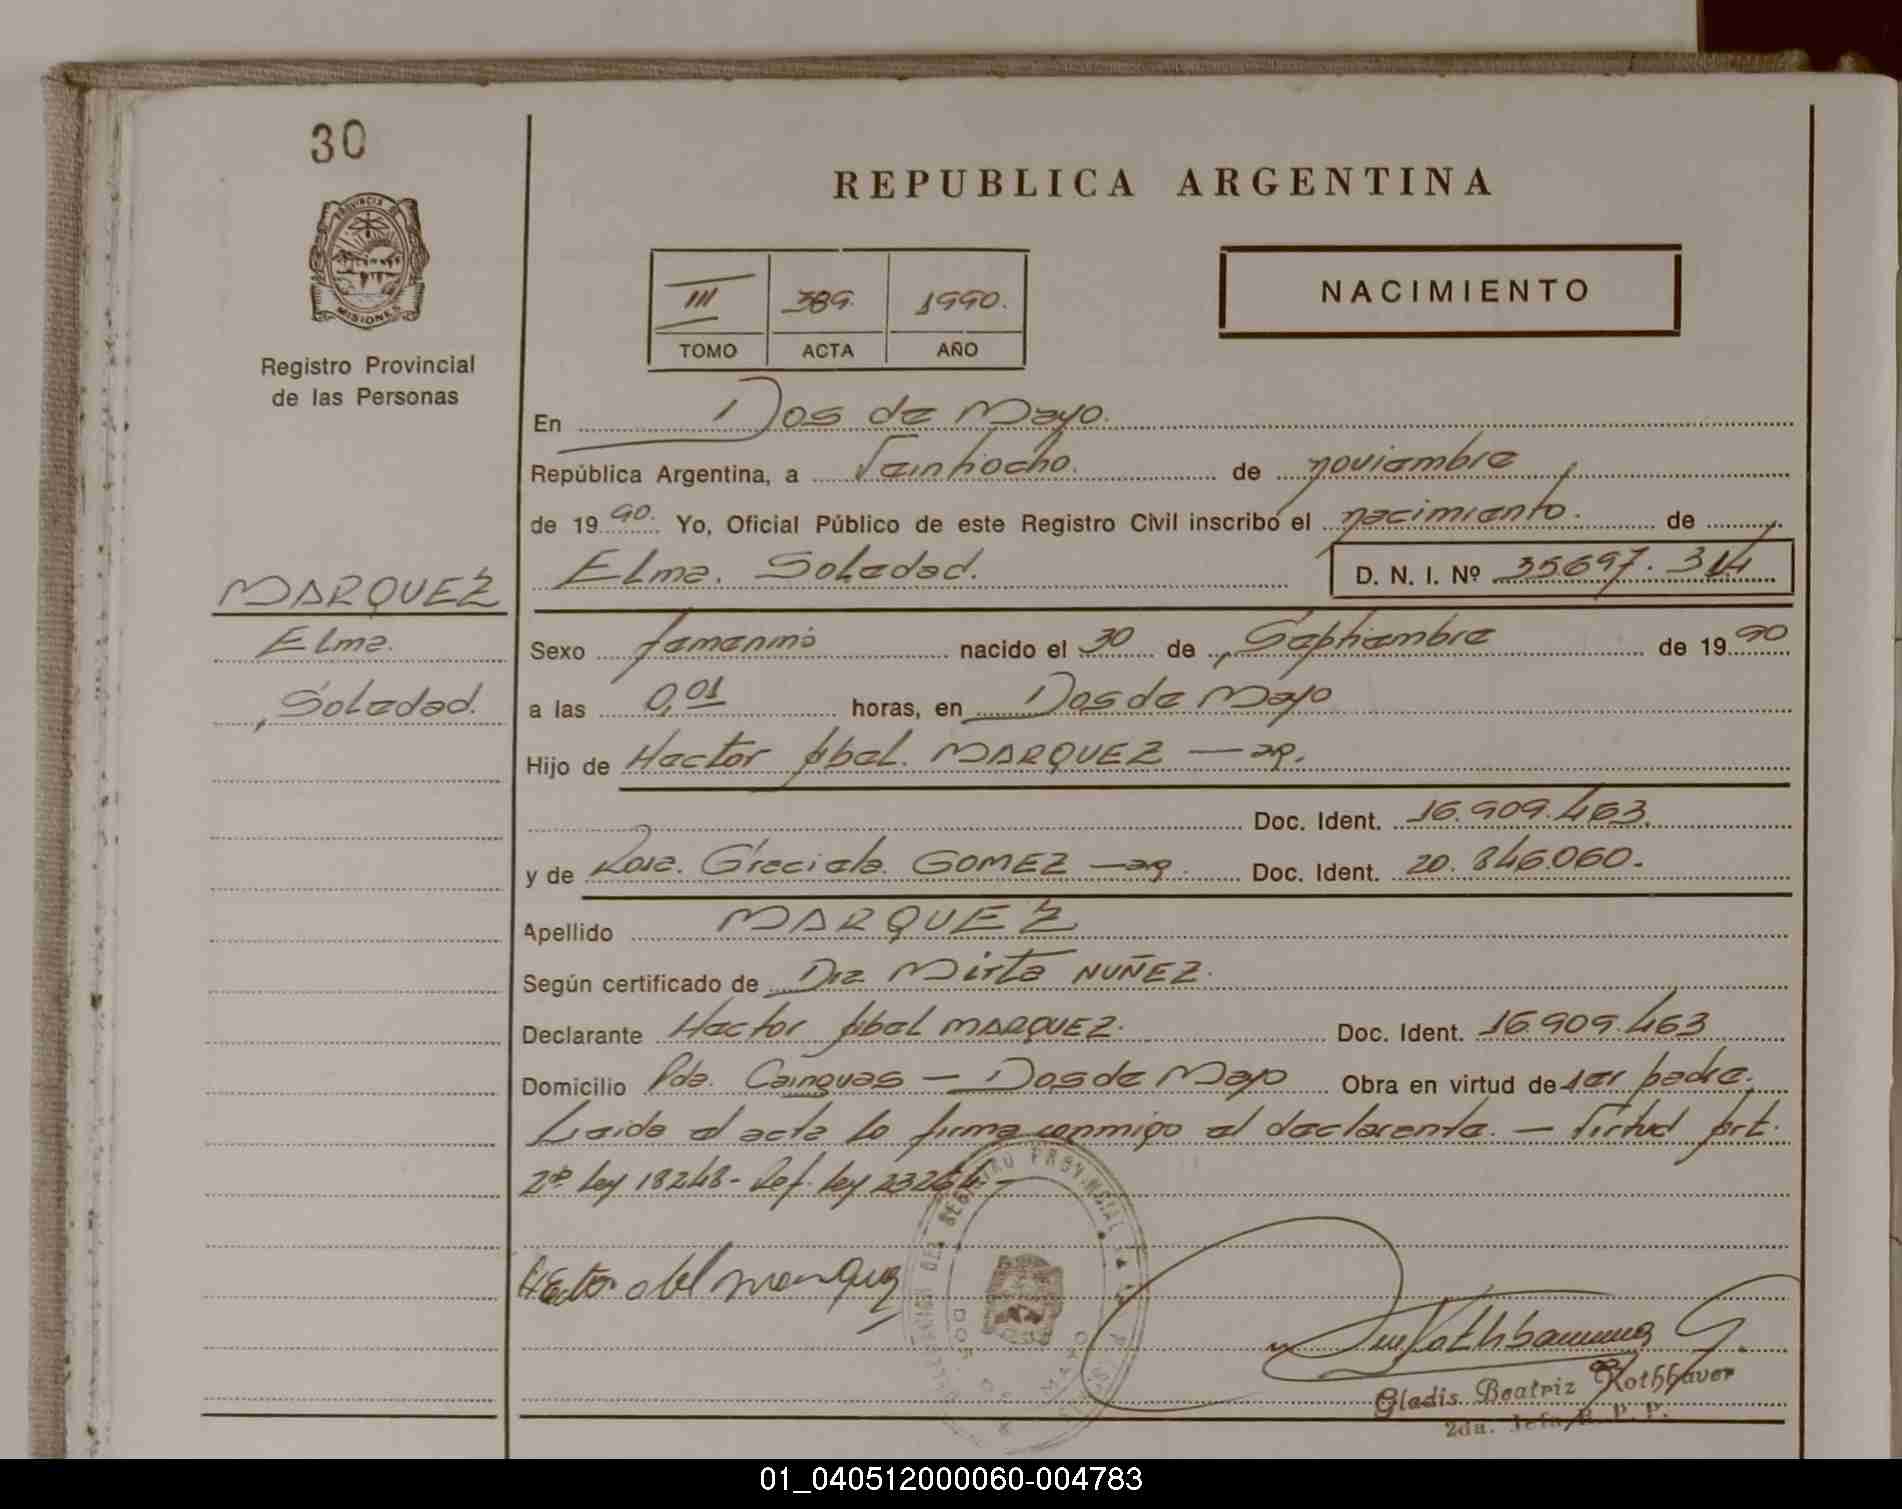 30
REPUBLICA ARGENTINA
PROVINCIA DE
MISIONES
Registro Provincial
de las Personas
III 389. 1990.
TOMO ACTA AÑO
NACIMIENTO
En Dos de Mayo.
República Argentina, a Veintiocho. de noviembre
de 1990. Yo, Oficial Público de este Registro Civil inscribo el nacimiento. de
Elma. Soledad.
D. N. I. Nº 35697.314
MARQUEZ
Elma.
Soledad.
Sexo femenino nacido el 30 de Septiembre de 1990
a las 0,01 horas, en Dos de Mayo
Hijo de Hector Abel. MARQUEZ — ar.
Doc. Ident. 16.909.463.
y de Rosa. Graciela. GOMEZ — arg. Doc. Ident. 20.846.060.
Apellido MARQUEZ
Según certificado de Dra Mirta NUÑEZ.
Declarante Hector Abel MARQUEZ. Doc. Ident. 16.909.463
Domicilio Pda. Cainguas — Dos de Mayo Obra en virtud de ser padre.
Leida el acta la firma conmigo el declarante. — Virtud Art.
2º ley 18248 - Ref. ley 23264 —
REGISTRO PROVINCIAL
DOS DE MAYO
Hector abel marquez
Rothbauer G.
Gladis Beatriz Rothbauer
2da. Jefa R. P. P.
01_040512000060-004783